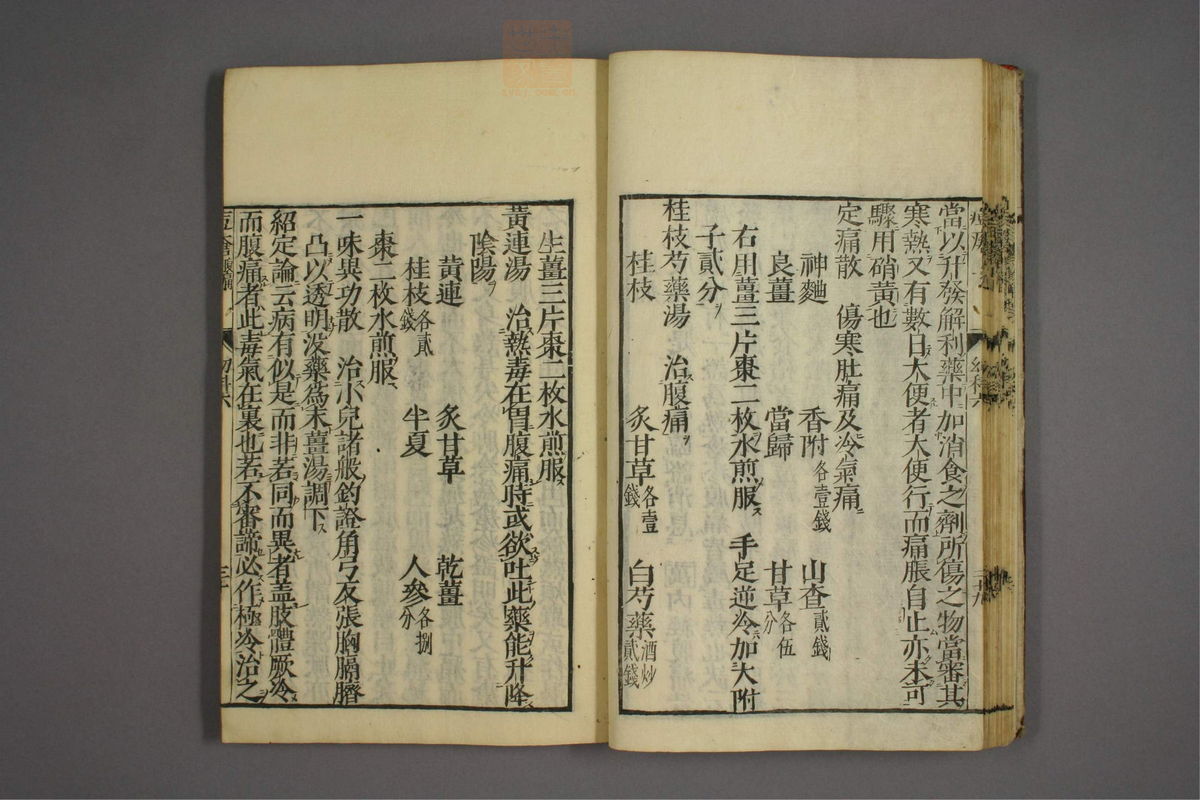 當以升發解利藥中加消食之劑所傷之物當審其
寒熱又有數日大便者大便行而痛脹自止亦未可
驟用硝黃也
定痛散　傷寒肚痛及冷氣痛
神麯　香附各壹錢　山查貳錢
良薑　當歸　甘草各伍分
右用薑三片棗二枚水煎服　手足逆冷加大附
子貳分
桂枝芍藥湯　治腹痛
桂枝　炙甘草各壹錢　白芍藥酒炒貳錢
生薑三片棗二枚水煎服
黃連湯　治熱毒在胃腹痛時或欲吐此藥能升降
陰陽
黃連　炙甘草　乾薑
桂枝各貳錢　半夏　人參各捌分
棗二枚水煎服
一味異功散　治小兒諸般釣證角弓反張胸膈臍
凸以透明沒藥爲末薑湯調下
紹定論云病有似是而非若同而異者盖肢體厥冷
而腹痛者此毒氣在裏也若不審諦必作極冷治之